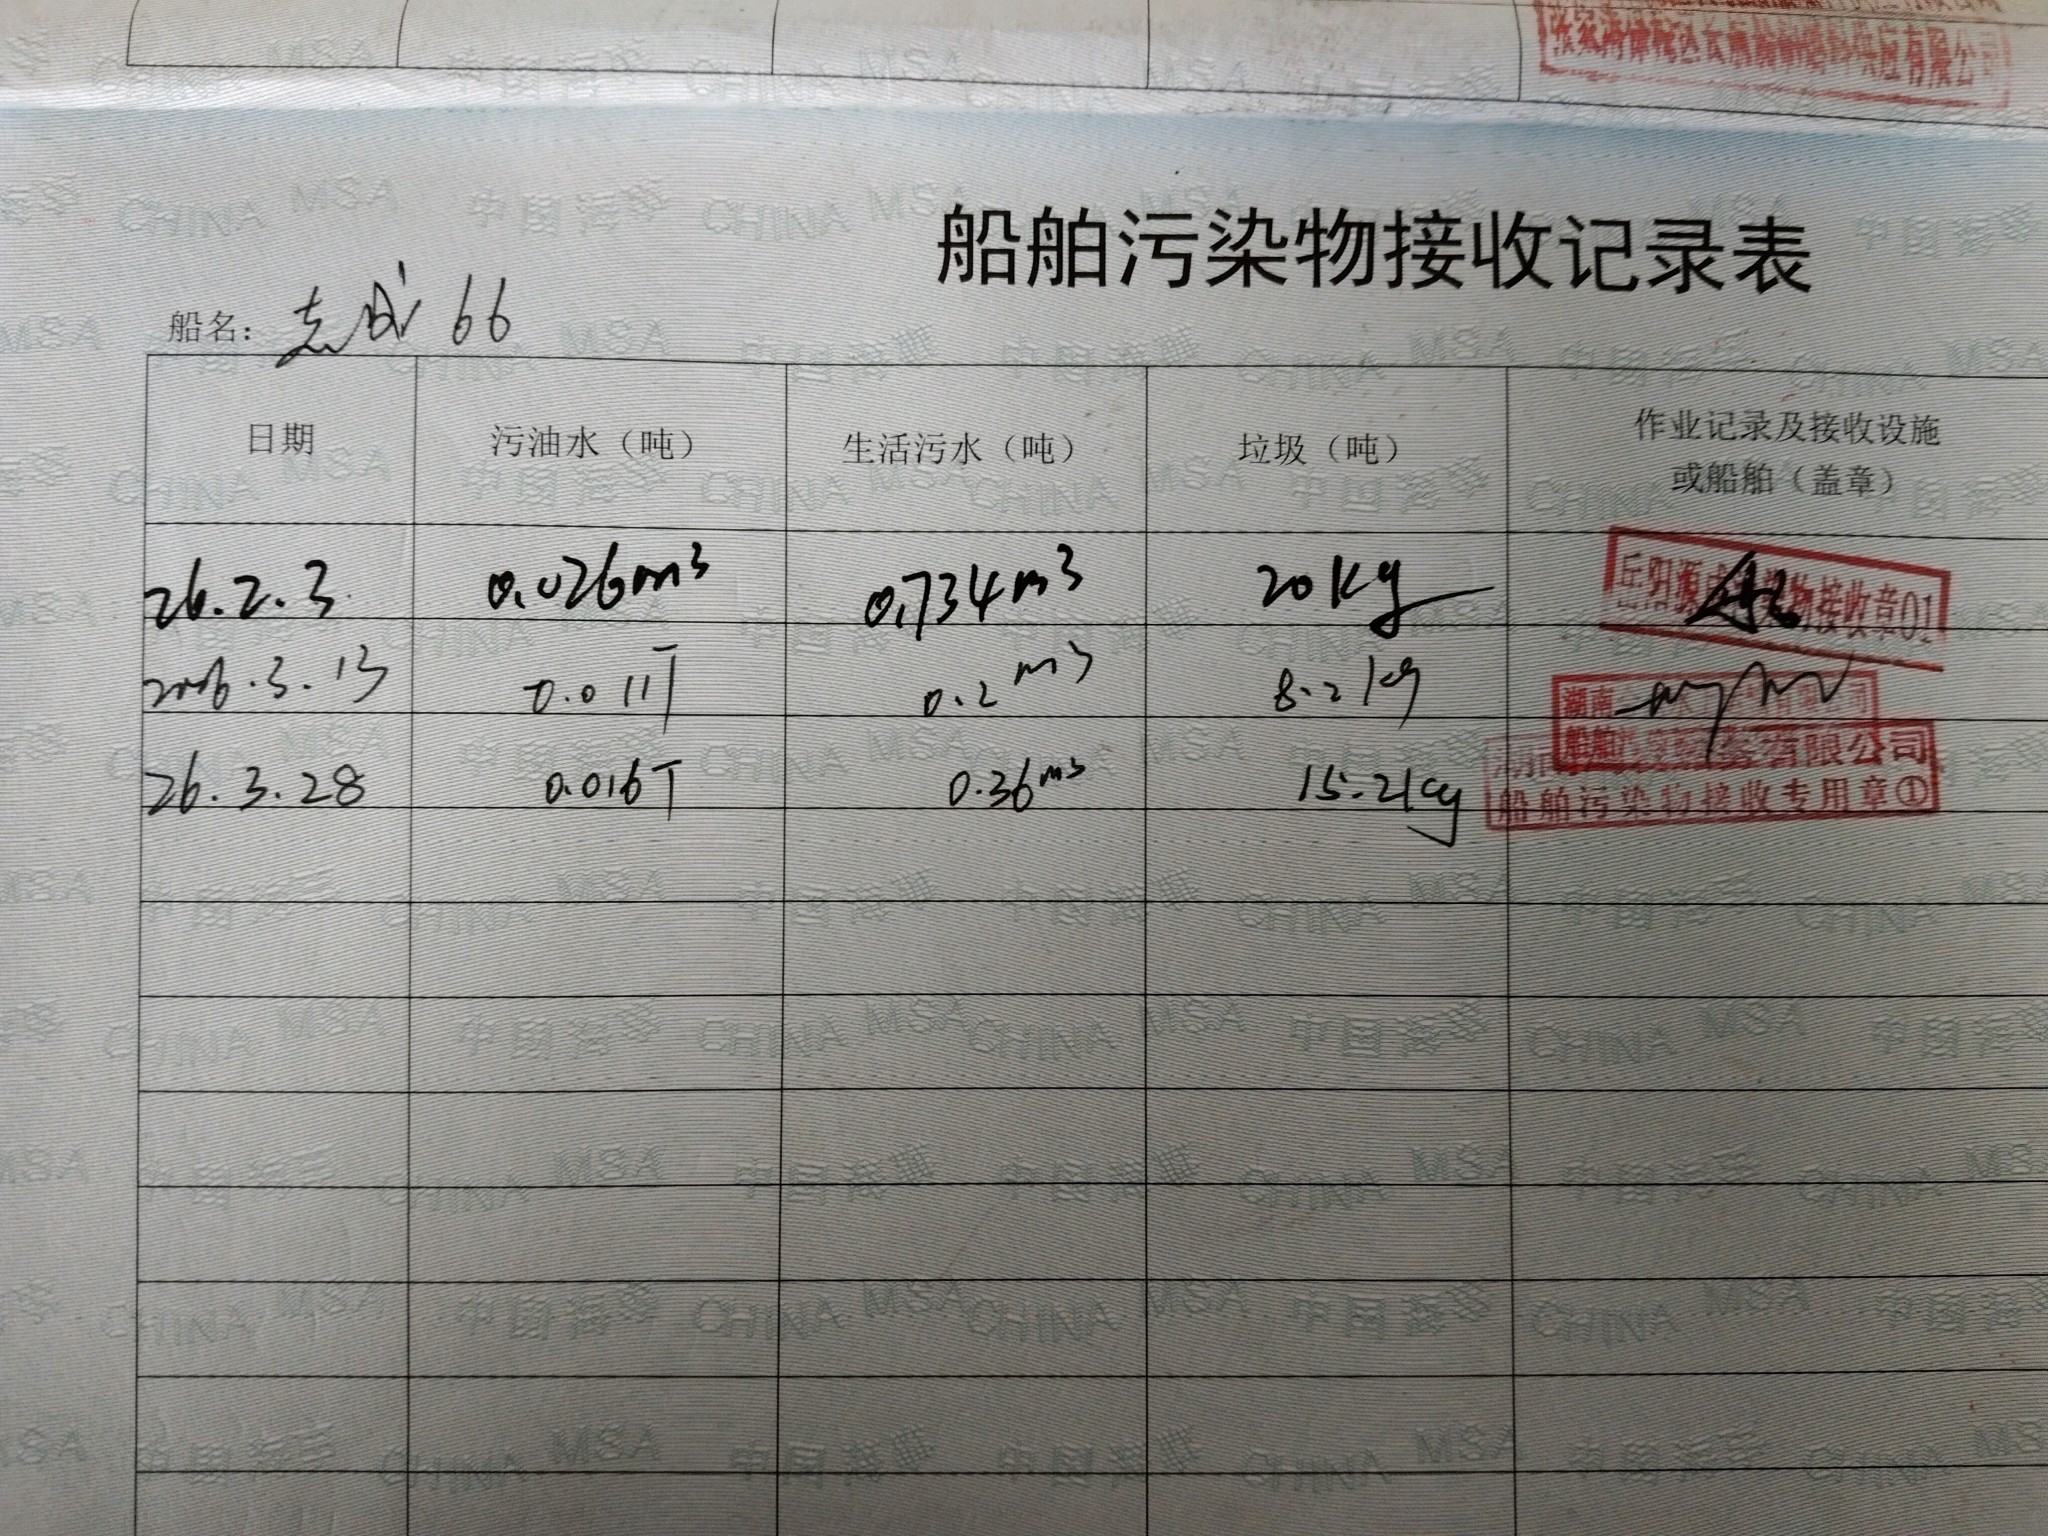 船舶污染物接收记录表
船名：志成 66
日期 污油水（吨） 生活污水（吨） 垃圾（吨） 作业记录及接收设施
或船舶（盖章）
26.2.3 0.026m³ 0.734m³ 20kg
接收章01
2026.3.13 0.011T 0.2m³ 8.2kg
湖南
船舶
26.3.28 0.016T 0.36m³ 15.2kg
有限公司
船舶污染物接收专用章①